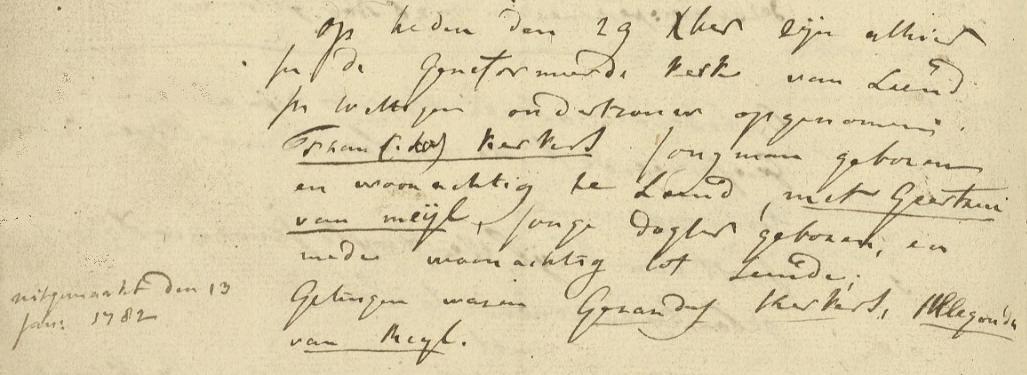 op heden den 29 Xber zijn alhier
in de Gereformeerde kerk van Leend
in wettigen ondertrouw opgenomen
Johan kerkers Jongman geboren
en woonachtig te Leend, met Geertrui
van meijl, Jonge dogter geboren, en
mede woonachtig tot Leende;
Getuigen waren Gerardus kerkers, Allegonda
van Meyl.
uitgemaakt den 13
Jan: 1782